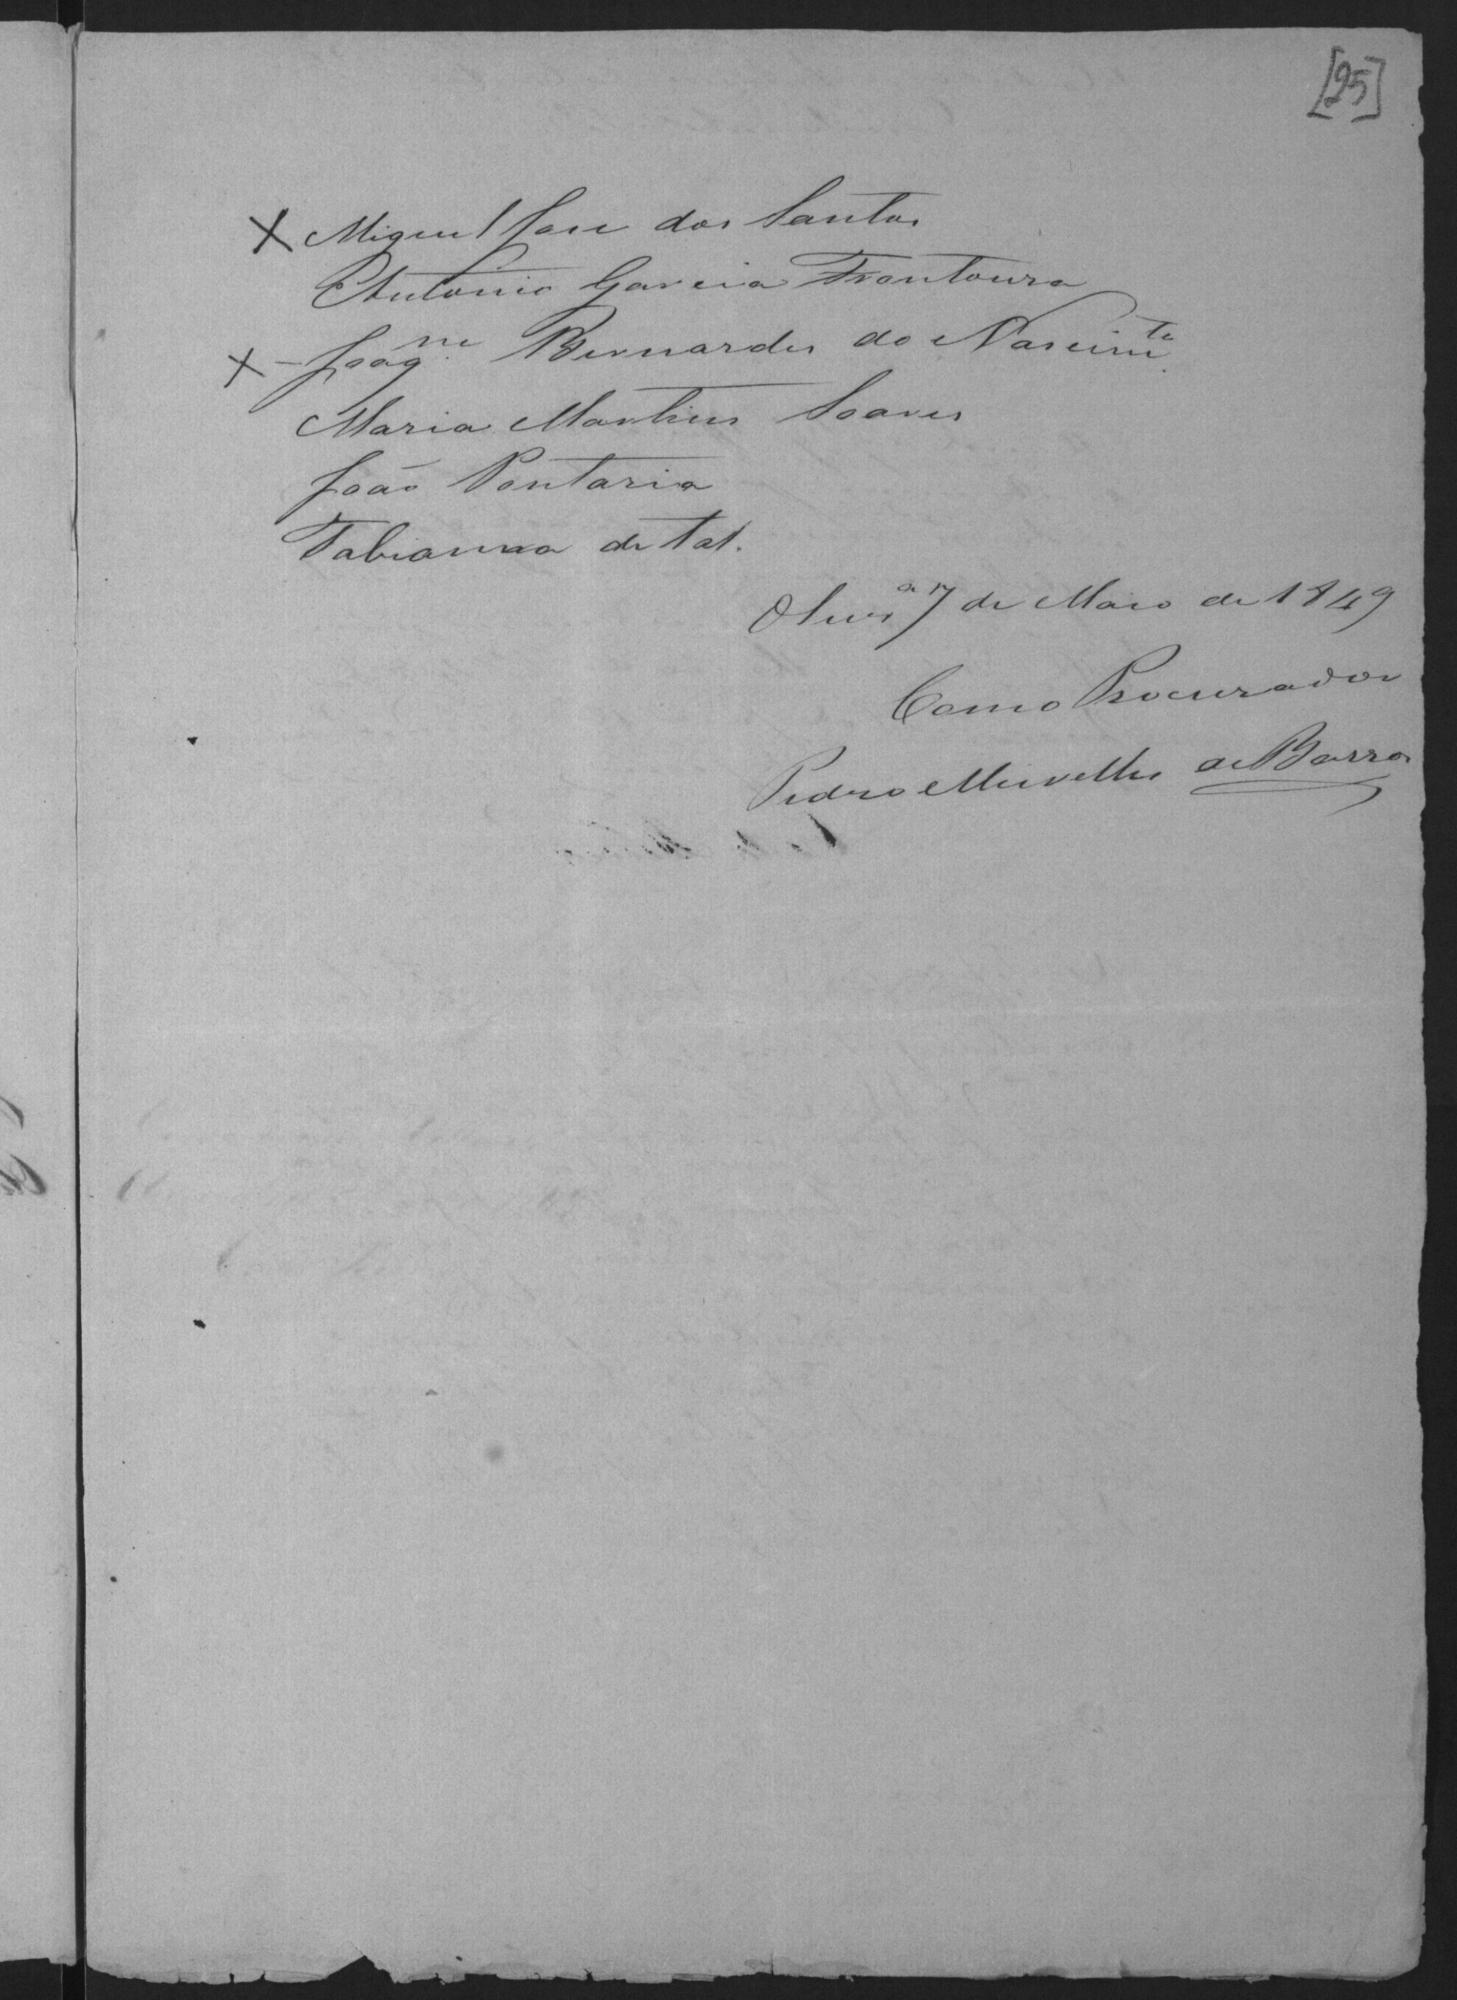 [25]
X Miguel Jose dos Santos
Antonio Garcia Frontoura
X - Joaq.m Bernardes do Nascim.to
Maria Martins Soares
João Pontaria
Fabianna de Tal.
Olivr.a 7 de Maio de 1849
Como Procurador
Pedro Meirelles de Barros